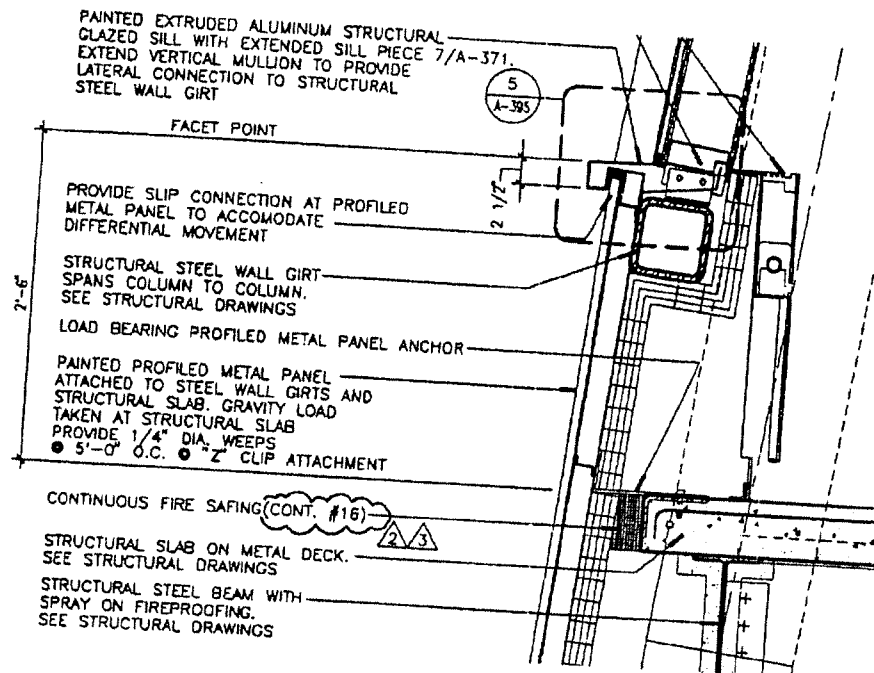 PAINTED EXTRUDED ALUMINUM STRUCTURAL
GLAZED SILL WITH EXTENDED SILL PIECE 7/A-371.
EXTEND VERTICAL MULLION TO PROVIDE
LATERAL CONNECTION TO STRUCTURAL
STEEL WALL GIRT
5
A-395
FACET POINT
2 1/2"
PROVIDE SLIP CONNECTION AT PROFILED
METAL PANEL TO ACCOMODATE
DIFFERENTIAL MOVEMENT
STRUCTURAL STEEL WALL GIRT
SPANS COLUMN TO COLUMN.
SEE STRUCTURAL DRAWINGS
2'-6"
LOAD BEARING PROFILED METAL PANEL ANCHOR
PAINTED PROFILED METAL PANEL
ATTACHED TO STEEL WALL GIRTS AND
STRUCTURAL SLAB. GRAVITY LOAD
TAKEN AT STRUCTURAL SLAB
PROVIDE 1/4" DIA. WEEPS
@ 5'-0" O.C. @ "Z" CLIP ATTACHMENT
CONTINUOUS FIRE SAFING (CONT. #16)
2 3
STRUCTURAL SLAB ON METAL DECK.
SEE STRUCTURAL DRAWINGS
STRUCTURAL STEEL BEAM WITH
SPRAY ON FIREPROOFING.
SEE STRUCTURAL DRAWINGS